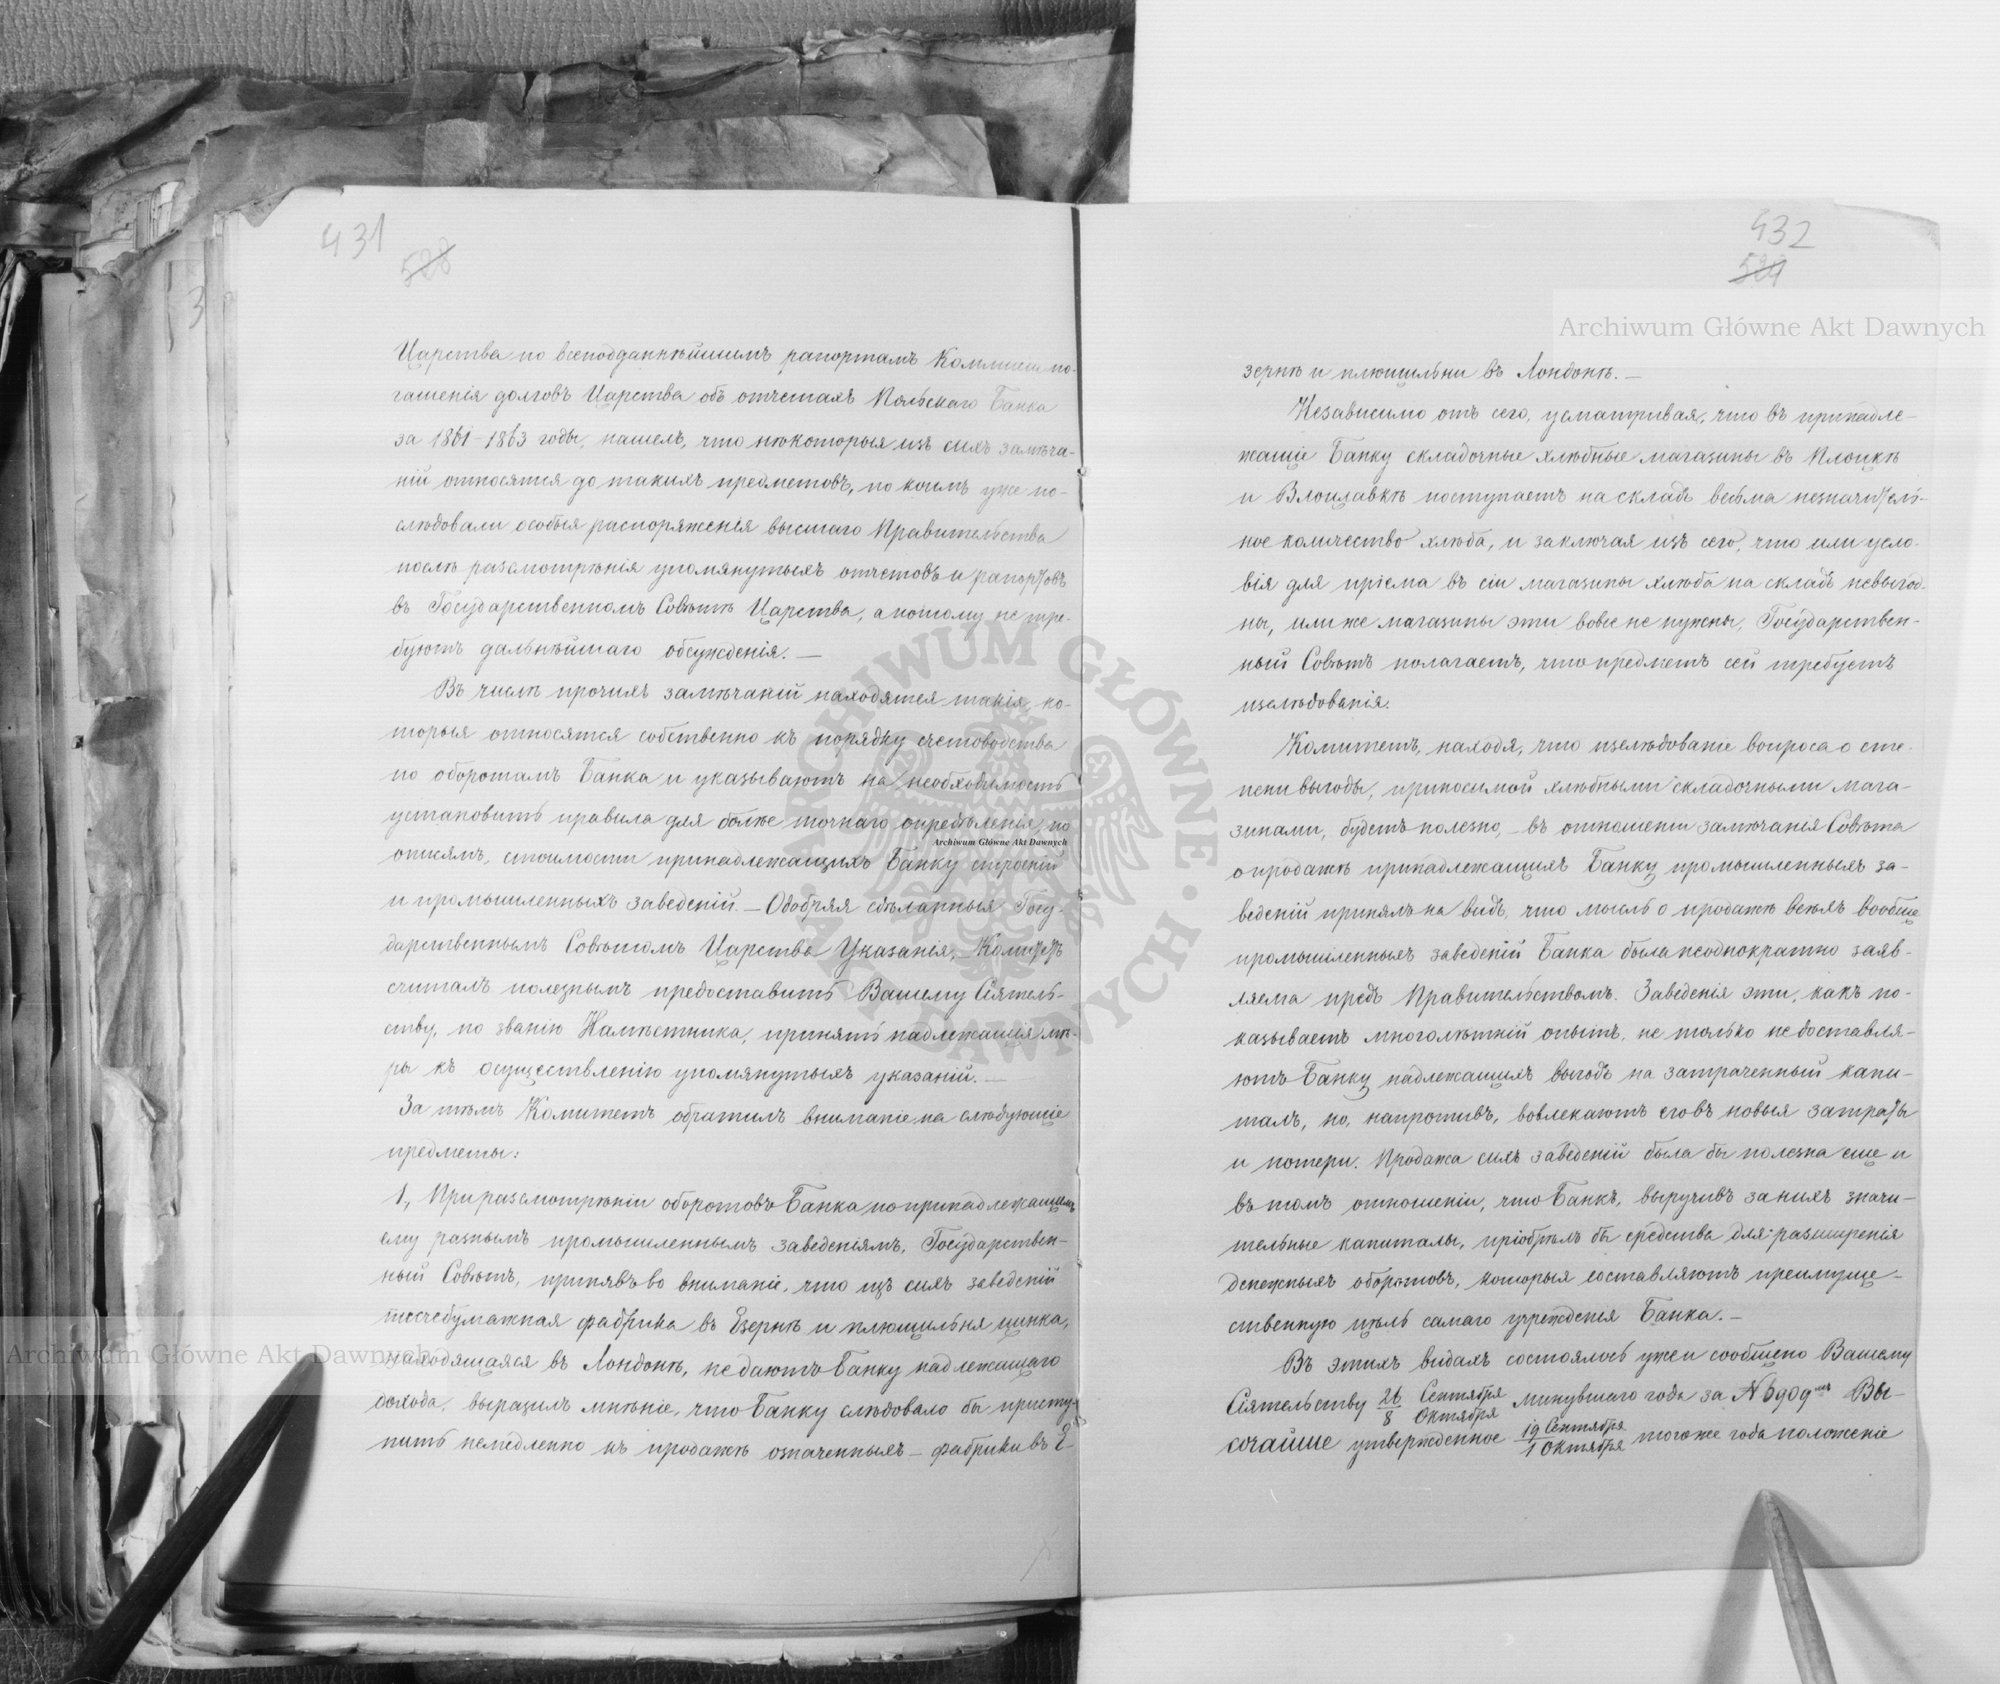 431
528
Царства по всеподданнѣйшимъ рапортамъ Коммисіи по-
гашенія долговъ Царства объ отчетахъ Польскаго Банка
за 1861-1863 годы, нашелъ, что нѣкоторыя изъ сихъ замѣча-
ній относятся до такихъ предметовъ, по коимъ уже по-
слѣдовали особыя распоряженія высшаго Правительства
послѣ разсмотрѣнія упомянутыхъ отчетовъ и рапортовъ
въ Государственномъ Совѣтѣ Царства, а потому не тре-
буютъ дальнѣйшаго обсужденія. —
Въ числѣ прочихъ замѣчаній находятся такія, ко-
торыя относятся собственно къ порядку счетоводства
по оборотамъ Банка и указываютъ на необходимость
установить правила для болѣе точнаго опредѣленія, по
описямъ, стоимости принадлежащихъ Банку строеній
и промышленныхъ заведеній. — Одобряя сдѣланныя Госу-
дарственнымъ Совѣтомъ Царства указанія, Комитетъ
считалъ полезнымъ предоставить Вашему Сіятель-
ству, по званію Намѣстника, принять надлежащія мѣ-
ры къ осуществленію упомянутыхъ указаній. —
За тѣмъ Комитетъ обратилъ вниманіе на слѣдующіе
предметы:
1, При разсмотрѣніи оборотовъ Банка по принадлежащимъ
ему разнымъ промышленнымъ заведеніямъ, Государствен-
ный Совѣтъ, принявъ во вниманіе, что изъ сихъ заведеній
писчебумажная фабрика въ Езернѣ и плющильня цинка,
находящаяся въ Лондонѣ, не даютъ Банку надлежащаго
дохода, выразилъ мнѣніе, что Банку слѣдовало бы присту-
пить немедленно къ продажѣ означенныхъ — фабрики въ Е-
432
529
зернѣ и плющильни въ Лондонѣ. —
Независимо отъ сего, усматривая, что въ принадле-
жащіе Банку складочные хлѣбные магазины въ Плоцкѣ
и Влоцлавкѣ поступаетъ на складъ весьма незначитель-
ное количество хлѣба, и заключая изъ сего, что или усло-
вія для пріема въ сіи магазины хлѣба на складъ невыгод-
ны, или же магазины эти вовсе не нужны, Государствен-
ный Совѣтъ полагаетъ, что предметъ сей требуетъ
изслѣдованія.
Комитетъ, находя, что изслѣдованіе вопроса о сте-
пени выгоды, приносимой хлѣбными складочными мага-
зинами, будетъ полезно, — въ отношеніи замѣчанія Совѣта
о продажѣ принадлежащихъ Банку промышленныхъ за-
веденій принялъ на видъ, что мысль о продажѣ всѣхъ вообще
промышленныхъ заведеній Банка была неоднократно заяв-
ляема предъ Правительствомъ. Заведенія эти, какъ по-
казываетъ многолѣтній опытъ, не только не доставля-
ютъ Банку надлежащихъ выгодъ на затраченный капи-
талъ, но, напротивъ, вовлекаютъ его въ новыя затраты
и потери. Продажа сихъ заведеній была бы полезна еще и
въ томъ отношеніи, что Банкъ, выручивъ за нихъ значи-
тельные капиталы, пріобрѣлъ бы средства для разширенія
денежныхъ оборотовъ, которыя составляютъ преимуще-
ственную цѣль самаго учрежденія Банка. —
Въ этихъ видахъ состоялось уже и сообщено Вашему
Сіятельству 26 Сентября / 8 Октября минувшаго года за № 6909мъ Вы-
сочайше утвержденное 19 Сентября / 1 Октября тогоже года положеніе
Archiwum Główne Akt Dawnych
Archiwum Główne Akt Dawnych
Archiwum Główne Akt Dawnych
ARCHIWUM GŁÓWNE · AKT DAWNYCH ·